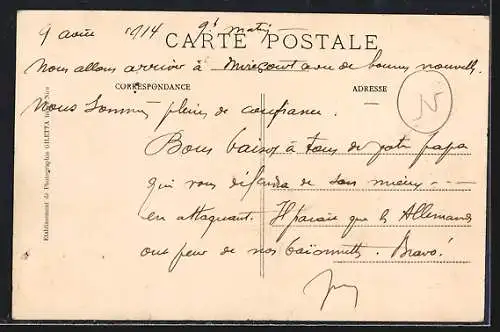 9 août 1914 9h matin
CARTE POSTALE
Nous allons arriver à Mirecourt avec de bonnes nouvelles.
CORRESPONDANCE
ADRESSE
Nous sommes pleins de confiance.
Bons baisers à tous de votre papa
qui vous défendra de son mieux - - -
en attaquant. Il parait que les Allemands
ont peur de nos baïonnettes. Bravo!
Etablissement de Photographie GILETTA